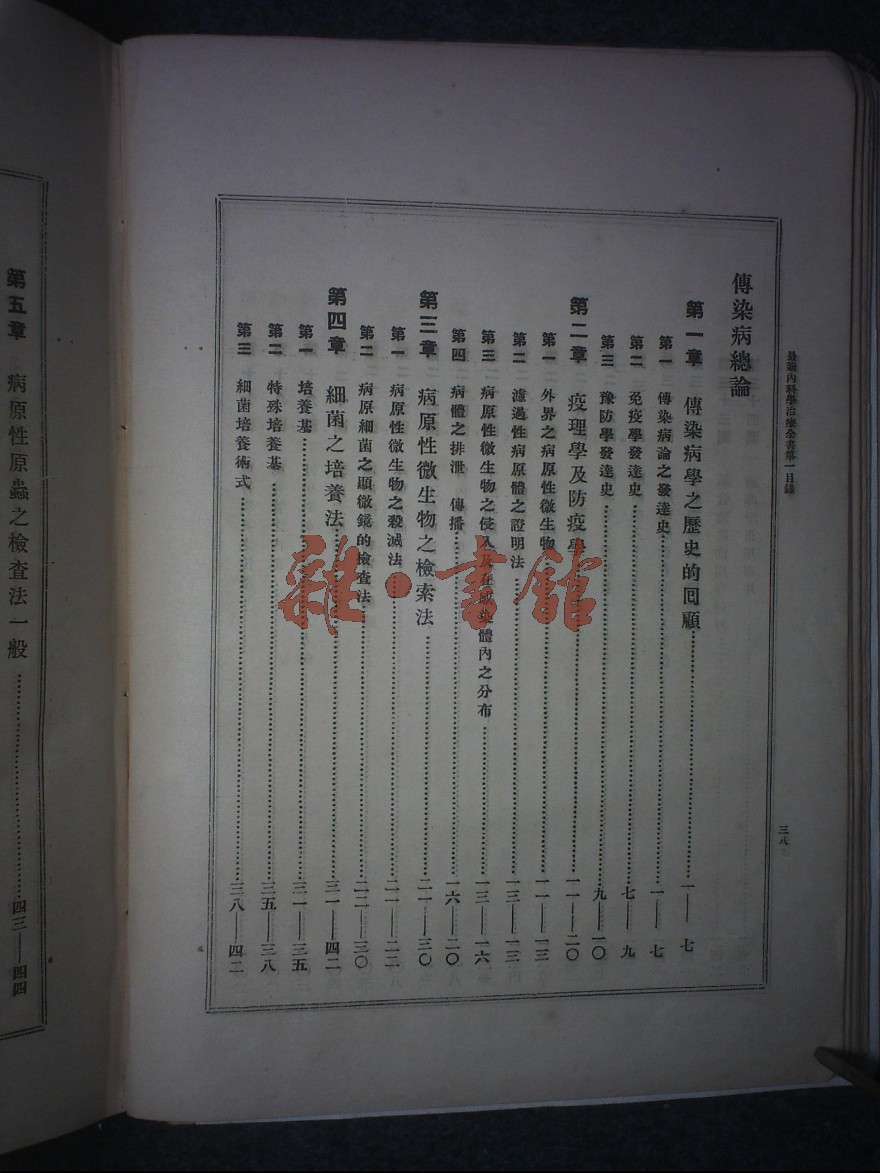 最新內科學治療全書第一目錄
傳染病總論
第一章 傳染病學之歷史的囘顧……一——七
第一 傳染病論之發達史……一——七
第二 免疫學發達史……七——九
第三 豫防學發達史……九——一〇
第二章 疫理學及防疫學……一一——二〇
第一 外界之病原性微生物……一一——一三
第二 濾過性病原體之證明法……一三——一三
第三 病原性微生物之侵入及在感染體內之分布……一三——一六
第四 病體之排泄 傳播……一六——二〇
第三章 病原性微生物之檢索法……二一——三〇
第一 病原性微生物之殺滅法……二一——二二
第二 病原細菌之顯微鏡的檢查法……二二——三〇
第四章 細菌之培養法……三一——四二
第一 培養基……三一——三五
第二 特殊培養基……三五——三八
第三 細菌培養術式……三八——四二
第五章 病原性原蟲之檢查法一般……四三——四四
雜·書館